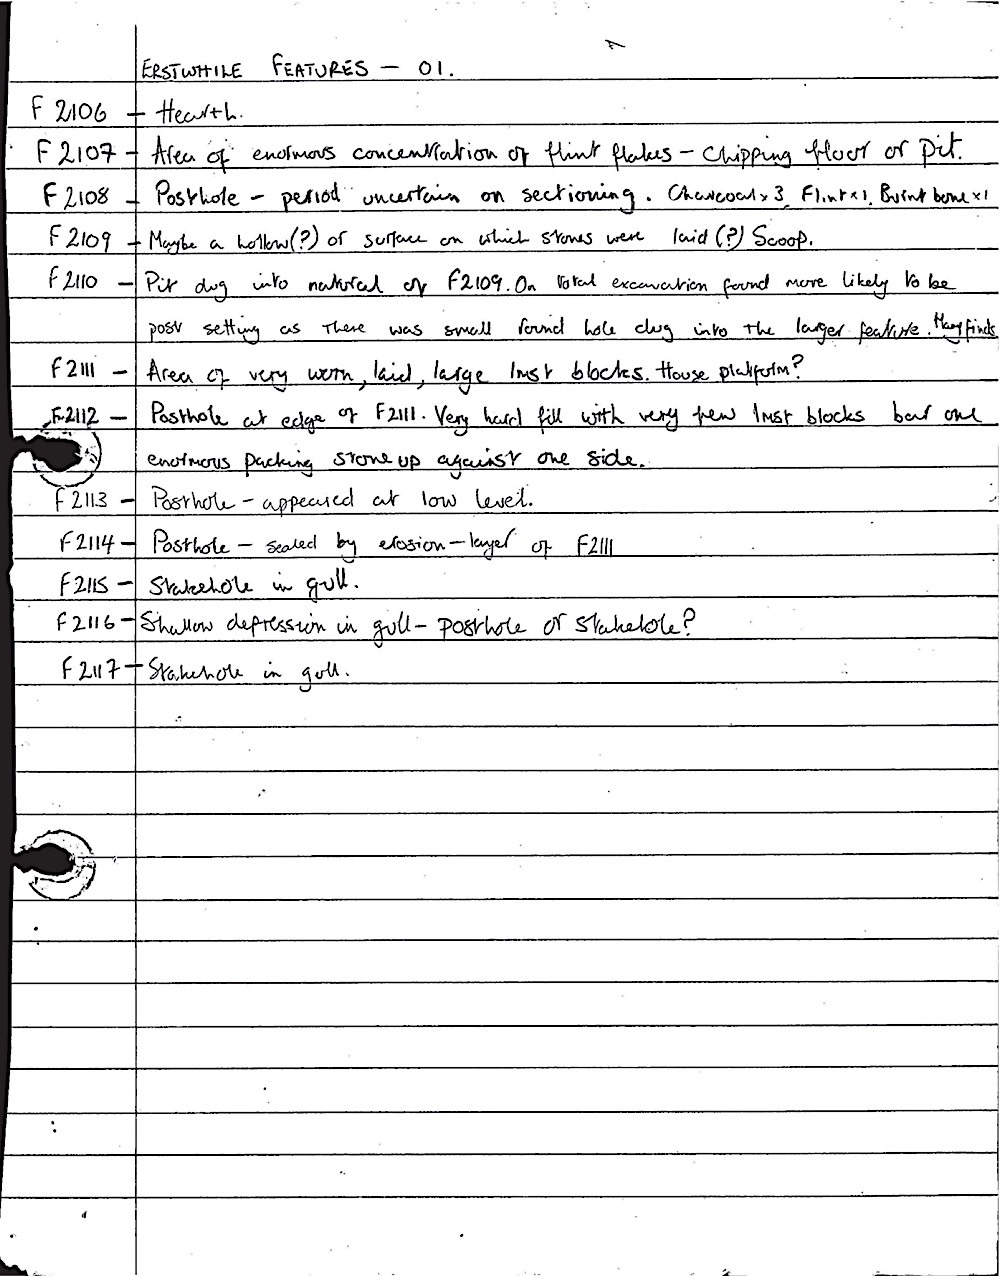 ERSTWHILE FEATURES - 01.
F 2106 - Hearth.
F 2107 - Area of enormous concentration of flint flakes - Chipping floor or pit.
F 2108 - Posthole - period uncertain on sectioning. Charcoal x 3, Flint x 1, Burnt bone x 1
F 2109 - Maybe a hollow (?) or surface on which stones were laid (?) Scoop.
F 2110 - Pit dug into natural of F2109. On total excavation found more likely to be
post setting as there was small round hole dug into the larger feature. Many finds
F 2111 - Area of very worn, laid, large lmst blocks. House platform?
F2112 - Posthole at edge of F2111. Very hard fill with very few lmst blocks bar one
enormous packing stone up against one side.
F2113 - Posthole - appeared at low level.
F2114 - Posthole - sealed by erosion-layer of F2111
F2115 - Stakehole in gull.
F2116 - Shallow depression in gull - posthole or stakehole?
F2117 - Stakehole in gull.